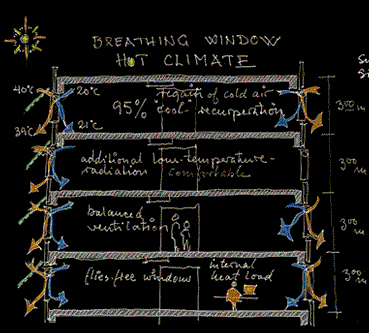 BREATHING WINDOW
HOT CLIMATE
40°C 20°C
of cold air
95% "cool" recuperation
39°C 21°C
3.00 m
additional low-temperature-
radiation comfortable
3.00 m
balanced
ventilation
3.00 m
flies-free windows
internal
heat load
3.00 m